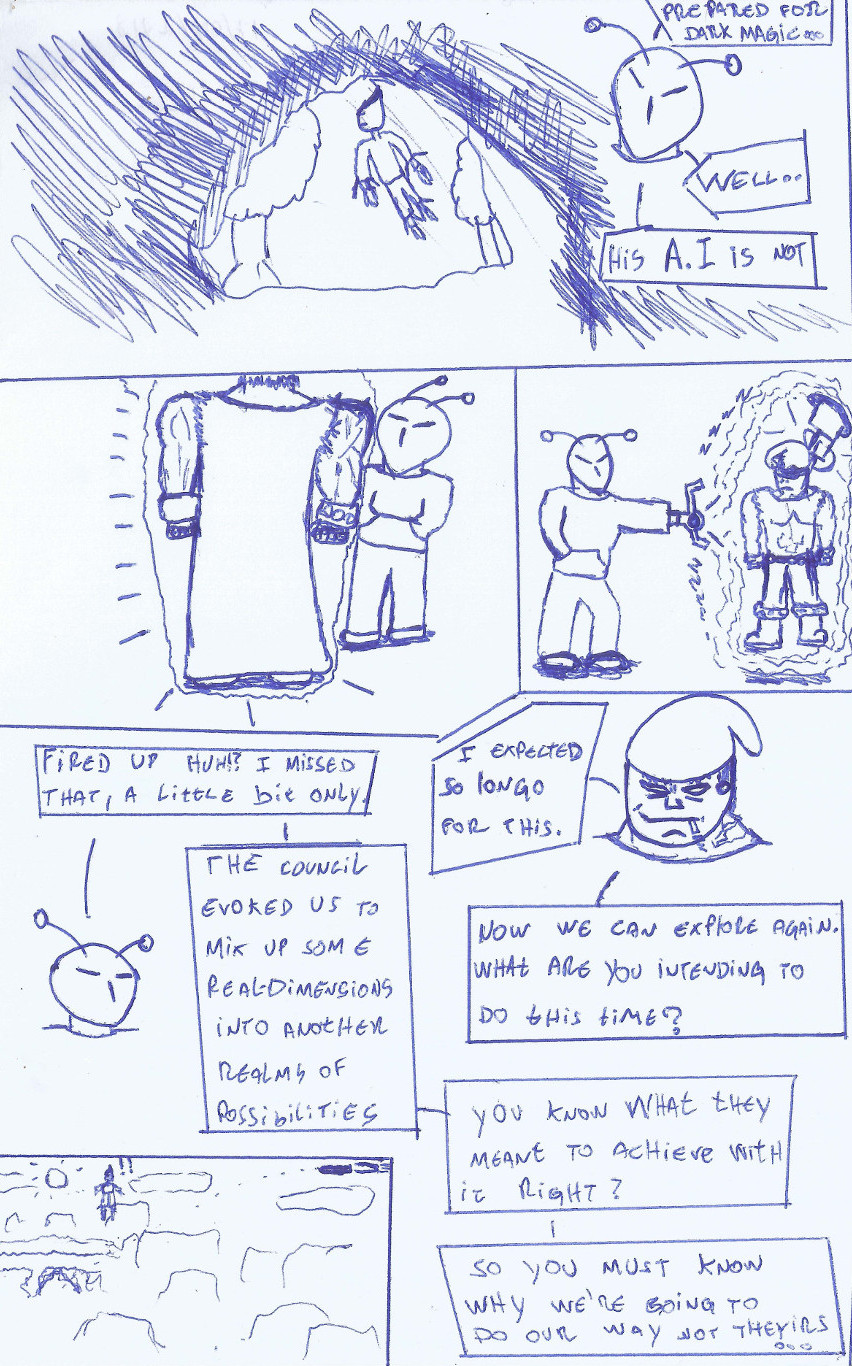 PREPARED FOR
DARK MAGIC...
WELL..
HIS A.I IS NOT
I EXPECTED
SO LONGO
FOR THIS.
FIRED UP HUH!? I MISSED
THAT, A LITTLE BIT ONLY.
THE COUNCIL
EVOKED US TO
MIX UP SOME
REAL-DIMENSIONS
INTO ANOTHER
REALMS OF
POSSIBILITIES
NOW WE CAN EXPLORE AGAIN.
WHAT ARE YOU INTENDING TO
DO THIS TIME?
YOU KNOW WHAT THEY
MEANT TO ACHIEVE WITH
IT RIGHT?
SO YOU MUST KNOW
WHY WE'RE GOING TO
DO OUR WAY NOT THEYIRS
...
!!